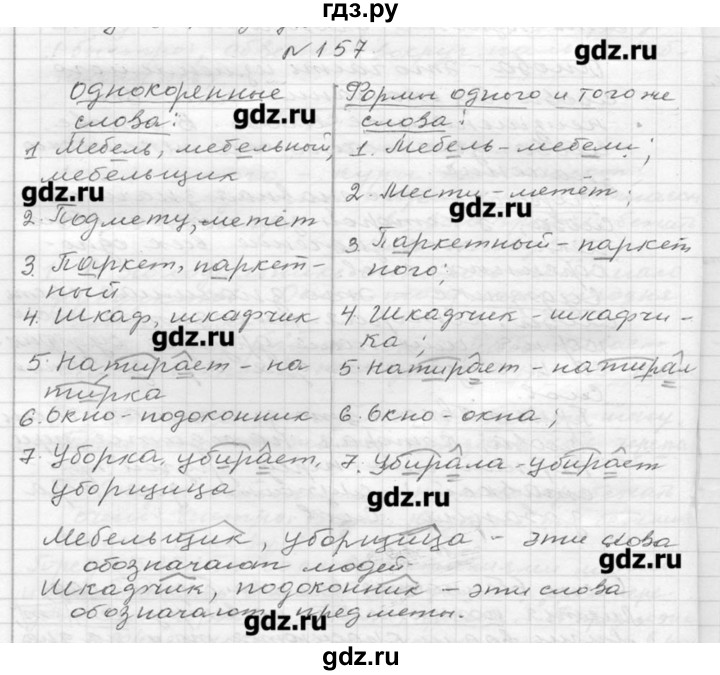 гдз.ру
№157
gdz.ru
однокоренные слова:
gdz.ru
1 Мебель, мебельный,
мебельщик
gdz.ru
2. Подмету, метёт
3. Паркет, паркет-
ный
4. Шкаф, шкафчик
gdz.ru
5. Натирает - на
тирка
6. Окно - подоконник
7. Уборка, убирает,
уборщица
Формы одного и того же
слова:
1. Мебель - мебели;
2. Мести - метёт;
gdz.ru
3. Паркетный - паркет
ного;
4. Шкафчик - шкафчи-
ка;
5. Натирает - натирал
6. Окно - окна;
7. Убирала - убирает
gdz.ru
Мебельщик, уборщица - эти слова
обозначают людей.
gdz.ru
Шкафчик, подоконник - эти слова
обозначают предметы.
gdz.ru
gdz.ru